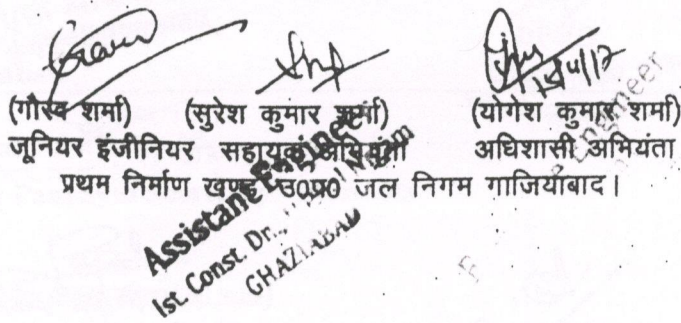 (गौरव शर्मा) (सुरेश कुमार शर्मा) (योगेश कुमार शर्मा)
जूनियर इंजीनियर सहायक अभियंता अधिशासी अभियंता
प्रथम निर्माण खण्ड उ0प्र0 जल निगम गाजियाबाद।
Assistant Engineer
Ist Const. Dn., Nigam
GHAZIABAD
Engineer